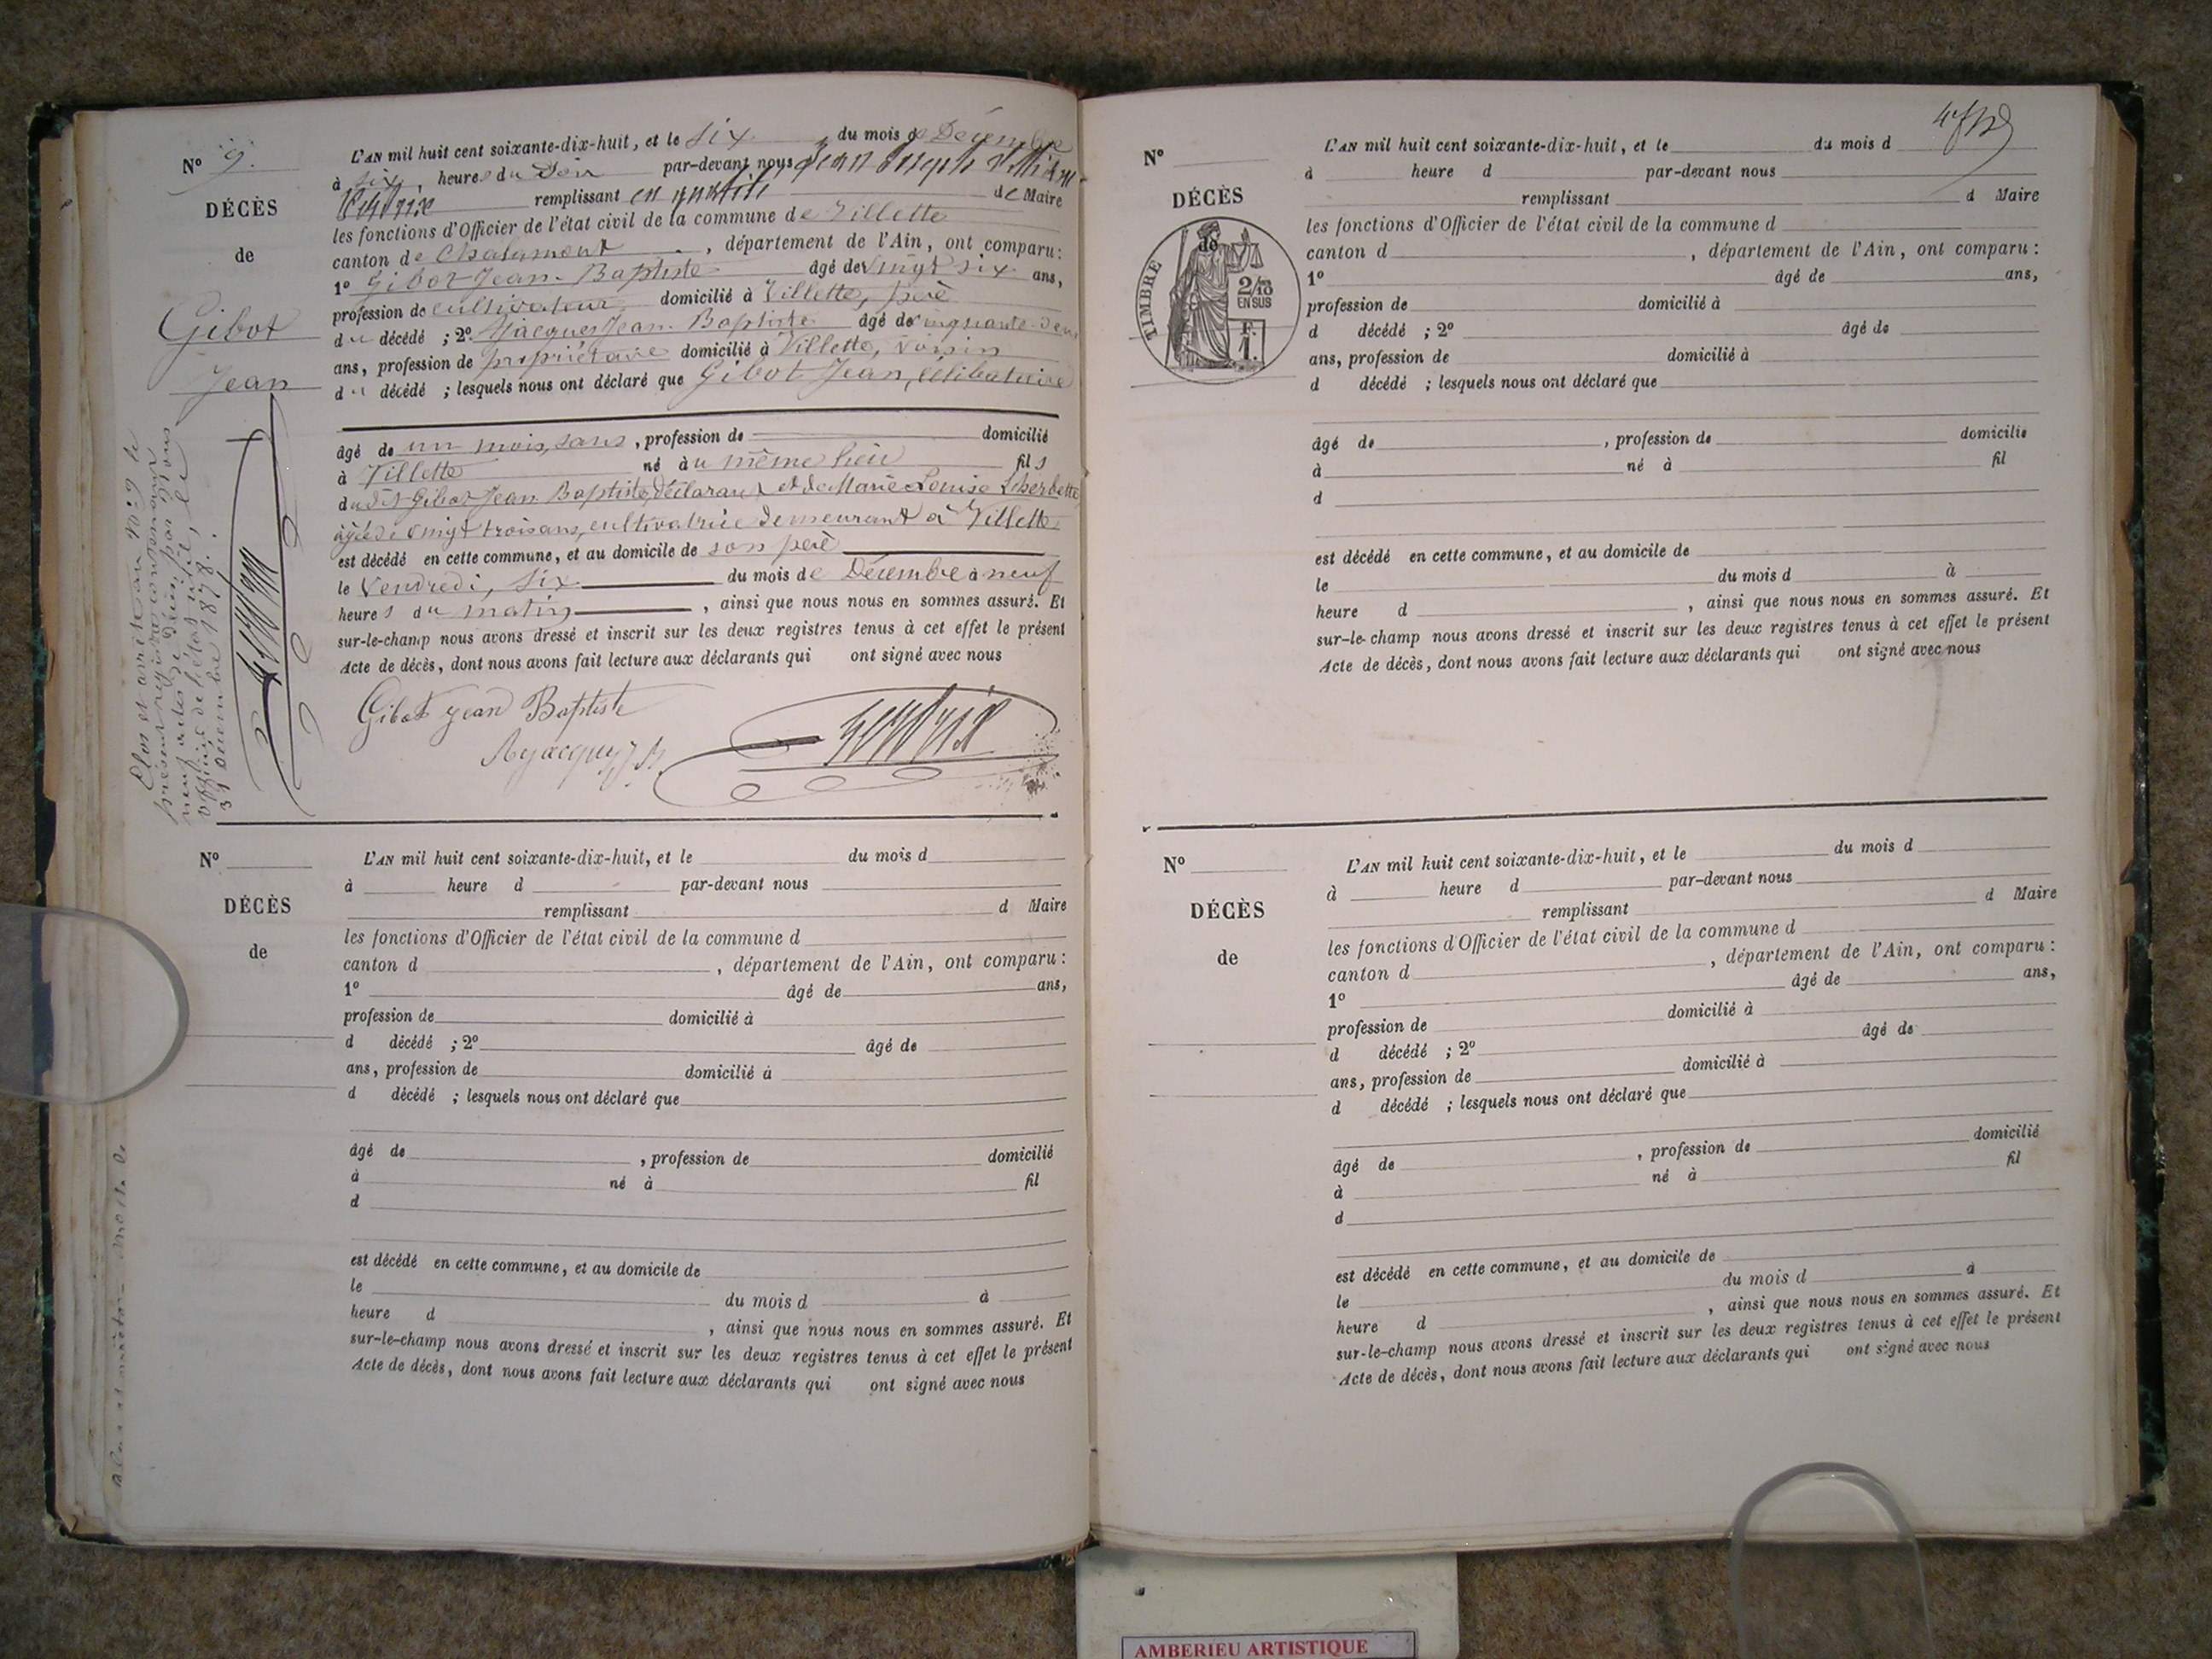 N° 9.
DÉCÈS
de
Gibot
Jean
L'AN mil huit cent soixante-dix-huit, et le six du mois de Décembre
à six, heures du Soir par-devant nous Jean Joseph
remplissant en qualité de Maire
les fonctions d'Officier de l'état civil de la commune de Villette
canton de Chalamont, département de l'Ain, ont comparu:
1° Gibot Jean-Baptiste âgé de vingt six ans,
profession de cultivateur domicilié à Villette, père
du décédé ; 2° Jean-Baptiste âgé de cinquante-deux
ans, profession de propriétaire domicilié à Villette, voisin
du décédé ; lesquels nous ont déclaré que Gibot Jean, célibataire
âgé de un mois, sans, profession de domicilié
à Villette né au même lieu fils
du dit Gibot Jean Baptiste, déclarant et de Marie Louise
âgée de vingt trois ans, cultivatrice demeurant à Villette
est décédé en cette commune, et au domicile de son père
le Vendredi, six du mois de Décembre à neuf
heures du matin, ainsi que nous nous en sommes assuré. Et
sur-le-champ nous avons dressé et inscrit sur les deux registres tenus à cet effet le présent
Acte de décès, dont nous avons fait lecture aux déclarants qui ont signé avec nous
Gibot Jean Baptiste
Clos et arrêté au N° 9 le
présent registre comprenant
neuf actes de décès par nous
officier de l'état civil, le
31 Décembre 1878.
N°
DÉCÈS
de
L'AN mil huit cent soixante-dix-huit, et le du mois d
à heure d par-devant nous
remplissant d Maire
les fonctions d'Officier de l'état civil de la commune d
canton d , département de l'Ain, ont comparu:
1° âgé de ans,
profession de domicilié à
d décédé ; 2° âgé de
ans, profession de domicilié à
d décédé ; lesquels nous ont déclaré que
âgé de , profession de domicilié
à né à fil
d
est décédé en cette commune, et au domicile de
le du mois d à
heure d , ainsi que nous nous en sommes assuré. Et
sur-le-champ nous avons dressé et inscrit sur les deux registres tenus à cet effet le présent
Acte de décès, dont nous avons fait lecture aux déclarants qui ont signé avec nous
N°
DÉCÈS
de
TIMBRE
2/10
EN SUS
F.
1.
L'AN mil huit cent soixante-dix-huit, et le du mois d
à heure d par-devant nous
remplissant d Maire
les fonctions d'Officier de l'état civil de la commune d
canton d , département de l'Ain, ont comparu:
1° âgé de ans,
profession de domicilié à
d décédé ; 2° âgé de
ans, profession de domicilié à
d décédé ; lesquels nous ont déclaré que
âgé de , profession de domicilié
à né à fil
d
est décédé en cette commune, et au domicile de
le du mois d à
heure d , ainsi que nous nous en sommes assuré. Et
sur-le-champ nous avons dressé et inscrit sur les deux registres tenus à cet effet le présent
Acte de décès, dont nous avons fait lecture aux déclarants qui ont signé avec nous
N°
DÉCÈS
de
L'AN mil huit cent soixante-dix-huit, et le du mois d
à heure d par-devant nous
remplissant d Maire
les fonctions d'Officier de l'état civil de la commune d
canton d , département de l'Ain, ont comparu:
1° âgé de ans,
profession de domicilié à
d décédé ; 2° âgé de
ans, profession de domicilié à
d décédé ; lesquels nous ont déclaré que
âgé de , profession de domicilié
à né à fil
d
est décédé en cette commune, et au domicile de
le du mois d à
heure d , ainsi que nous nous en sommes assuré. Et
sur-le-champ nous avons dressé et inscrit sur les deux registres tenus à cet effet le présent
Acte de décès, dont nous avons fait lecture aux déclarants qui ont signé avec nous
AMBERIEU ARTISTIQUE